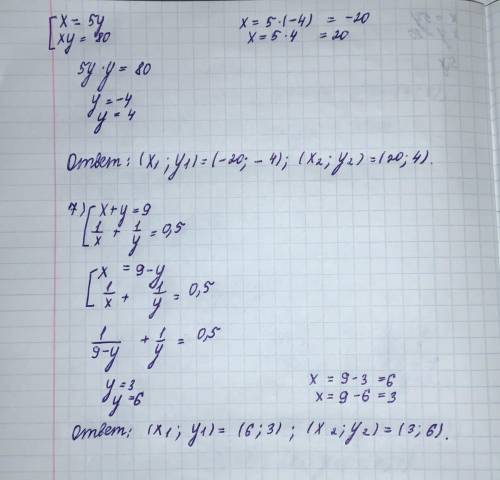 x = 5y
xy = 80
x = 5·(-4) = -20
x = 5·4 = 20
5y·y = 80
y = -4
y = 4
Ответ: (x₁; y₁) = (-20; -4); (x₂; y₂) = (20; 4).
7) x+y=9
1/x + 1/y = 0,5
x = 9-y
1/x + 1/y = 0,5
1/(9-y) + 1/y = 0,5
y = 3
y = 6
x = 9-3 = 6
x = 9-6 = 3
Ответ: (x₁; y₁) = (6; 3); (x₂; y₂) = (3; 6).